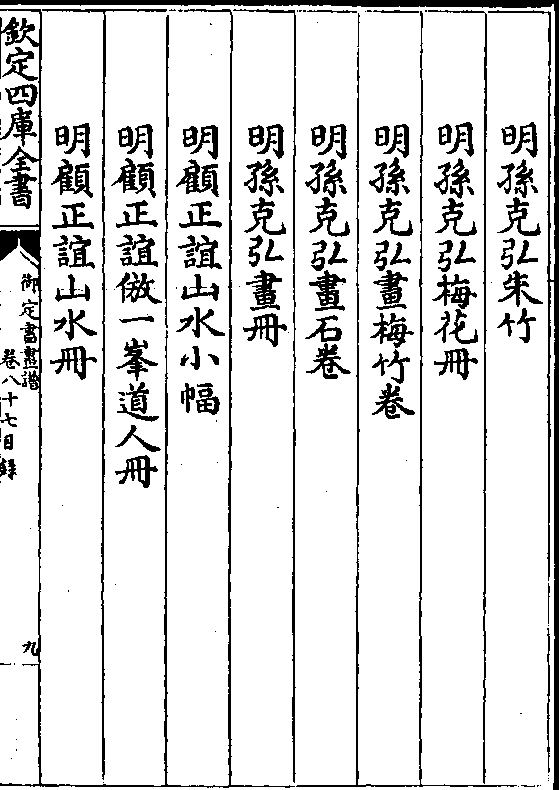 明孫克弘朱竹
明孫克弘梅花冊
明孫克弘畫梅竹卷
明孫克弘畫石卷
明孫克弘畫冊
明顧正誼山水小幅
明顧正誼倣一峯道人冊
明顧正誼山水冊
欽定四庫全書
御定書畫譜
卷八十七目錄
九